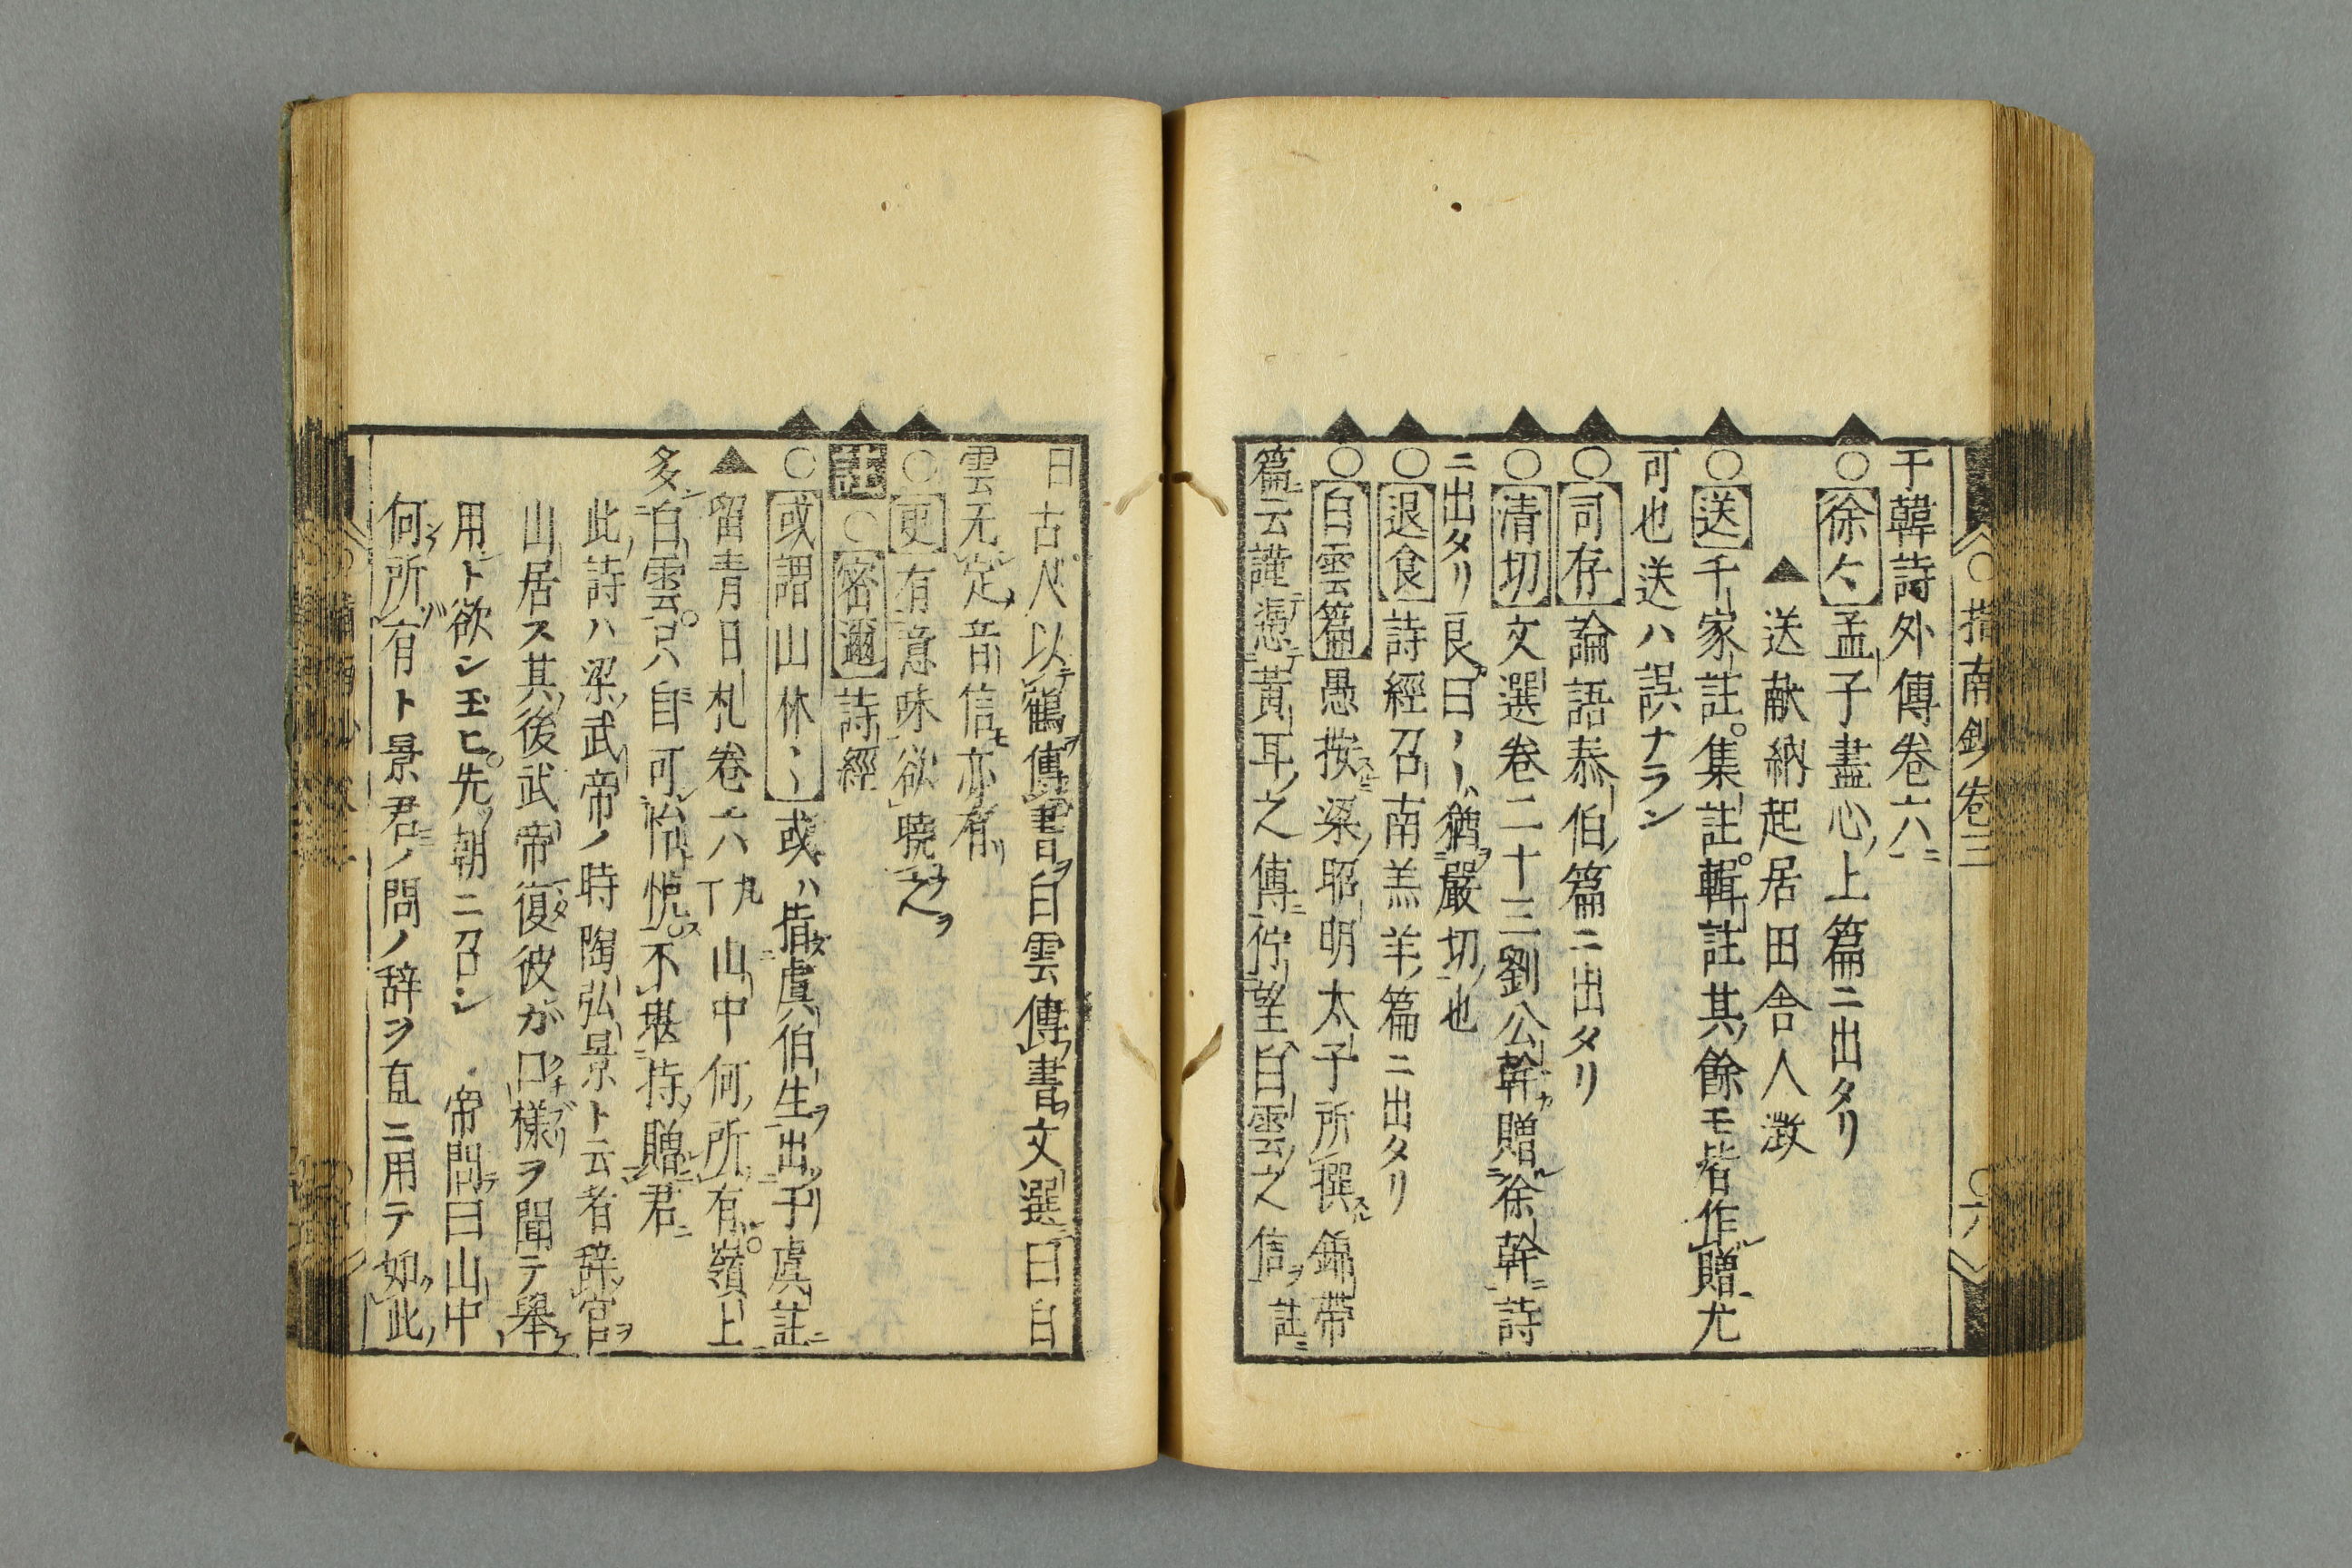 于韓詩外傳卷六ニ
○徐々孟子盡心上篇ニ出タリ
▲送献納起居田舎人澂
○送千家註。集註。輯註其餘モ皆作贈尤
可也送ハ誤ナラン
○司存論語泰伯篇ニ出タリ
○清切文選卷二十三劉公幹贈徐幹詩
ニ出タリ良曰〻〻猶嚴切也
○退食詩經召南羔羊篇ニ出タリ
○白雲篇愚按梁昭明太子所撰錦帯
篇云謹憑黃耳之傳佇望白雲之信註
指南鈔卷三
○六
曰古人以鶴傳書白雲傳書文選曰白
雲无定音信亦有
○更有意味欲曉之
註○密邇詩經
○或謂山林〻或ハ指虞伯生出于虞註
▲留青日札卷六九丁山中何所有。嶺上
多白雲。只自可怡悦。不堪持贈君
此詩ハ梁武帝ノ時陶弘景ト云者辞官
山居ス其後武帝復彼が口様ヲ聞テ舉
用ト欲シ玉ヒ。先朝ニ召シ 帝問曰山中
何所有ト景君ノ問ノ辞ヲ直ニ用テ如此